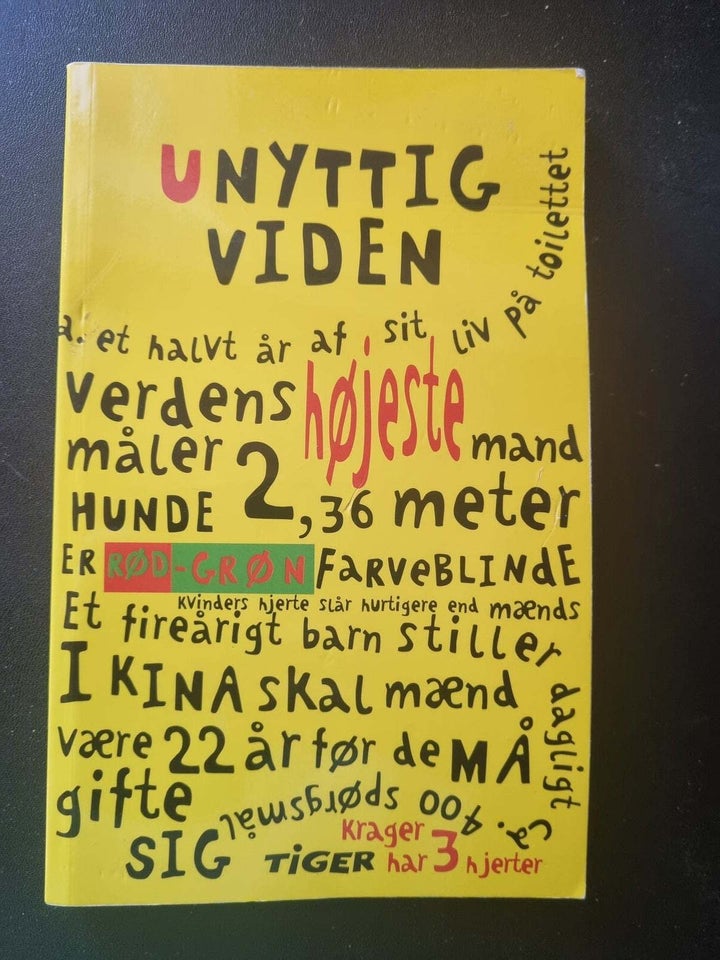 UNYTTIG
VIDEN
a. et halvt år af sit liv på toilettet
verdens højeste mand
måler 2,36 meter
HUNDE
ER RØD-GRØN FARVEBLINDE
Kvinders hjerte slår hurtigere end mænds
Et fireårigt barn stiller dagligt ca. 400 spørgsmål
I KINA skal mænd
være 22 år før de MÅ
gifte
SIG
Krager
har 3 hjerter
TIGER